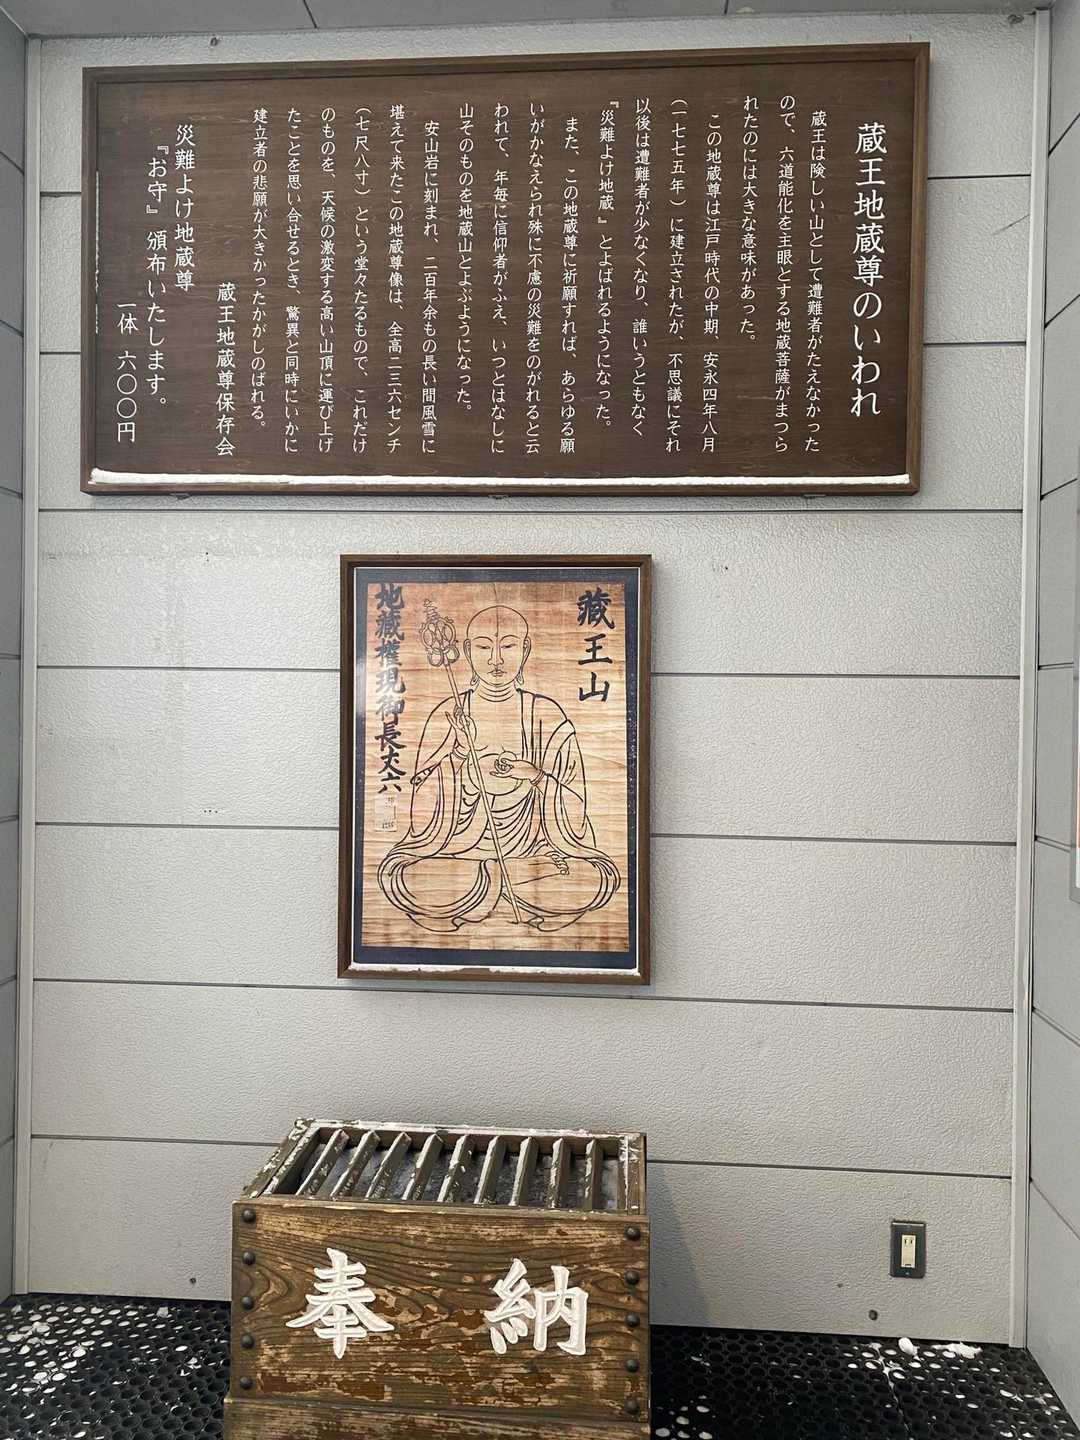 蔵王地蔵尊のいわれ
蔵王は険しい山として遭難者がたえなかった
ので、六道能化を主眼とする地蔵菩薩がまつら
れたのには大きな意味があった。
この地蔵尊は江戸時代の中期、安永四年八月
(一七七五年)に建立されたが、不思議にそれ
以後は遭難者が少なくなり、誰いうともなく
『災難よけ地蔵』とよばれるようになった。
また、この地蔵尊に祈願すれば、あらゆる願
いがかなえられ殊に不慮の災難をのがれると云
われて、年毎に信仰者がふえ、いつとはなしに
山そのものを地蔵山とよぶようになった。
安山岩に刻まれ、二百年余もの長い間風雪に
堪えて来たこの地蔵尊像は、全高二三六センチ
(七尺八寸)という堂々たるもので、これだけ
のものを、天候の激変する高い山頂に運び上げ
たことを思い合せるとき、驚異と同時にいかに
建立者の悲願が大きかったかがしのばれる。
蔵王地蔵尊保存会
災難よけ地蔵尊
『お守』頒布いたします。
一体 六〇〇円
藏王山
地藏權現御長丈六
奉納